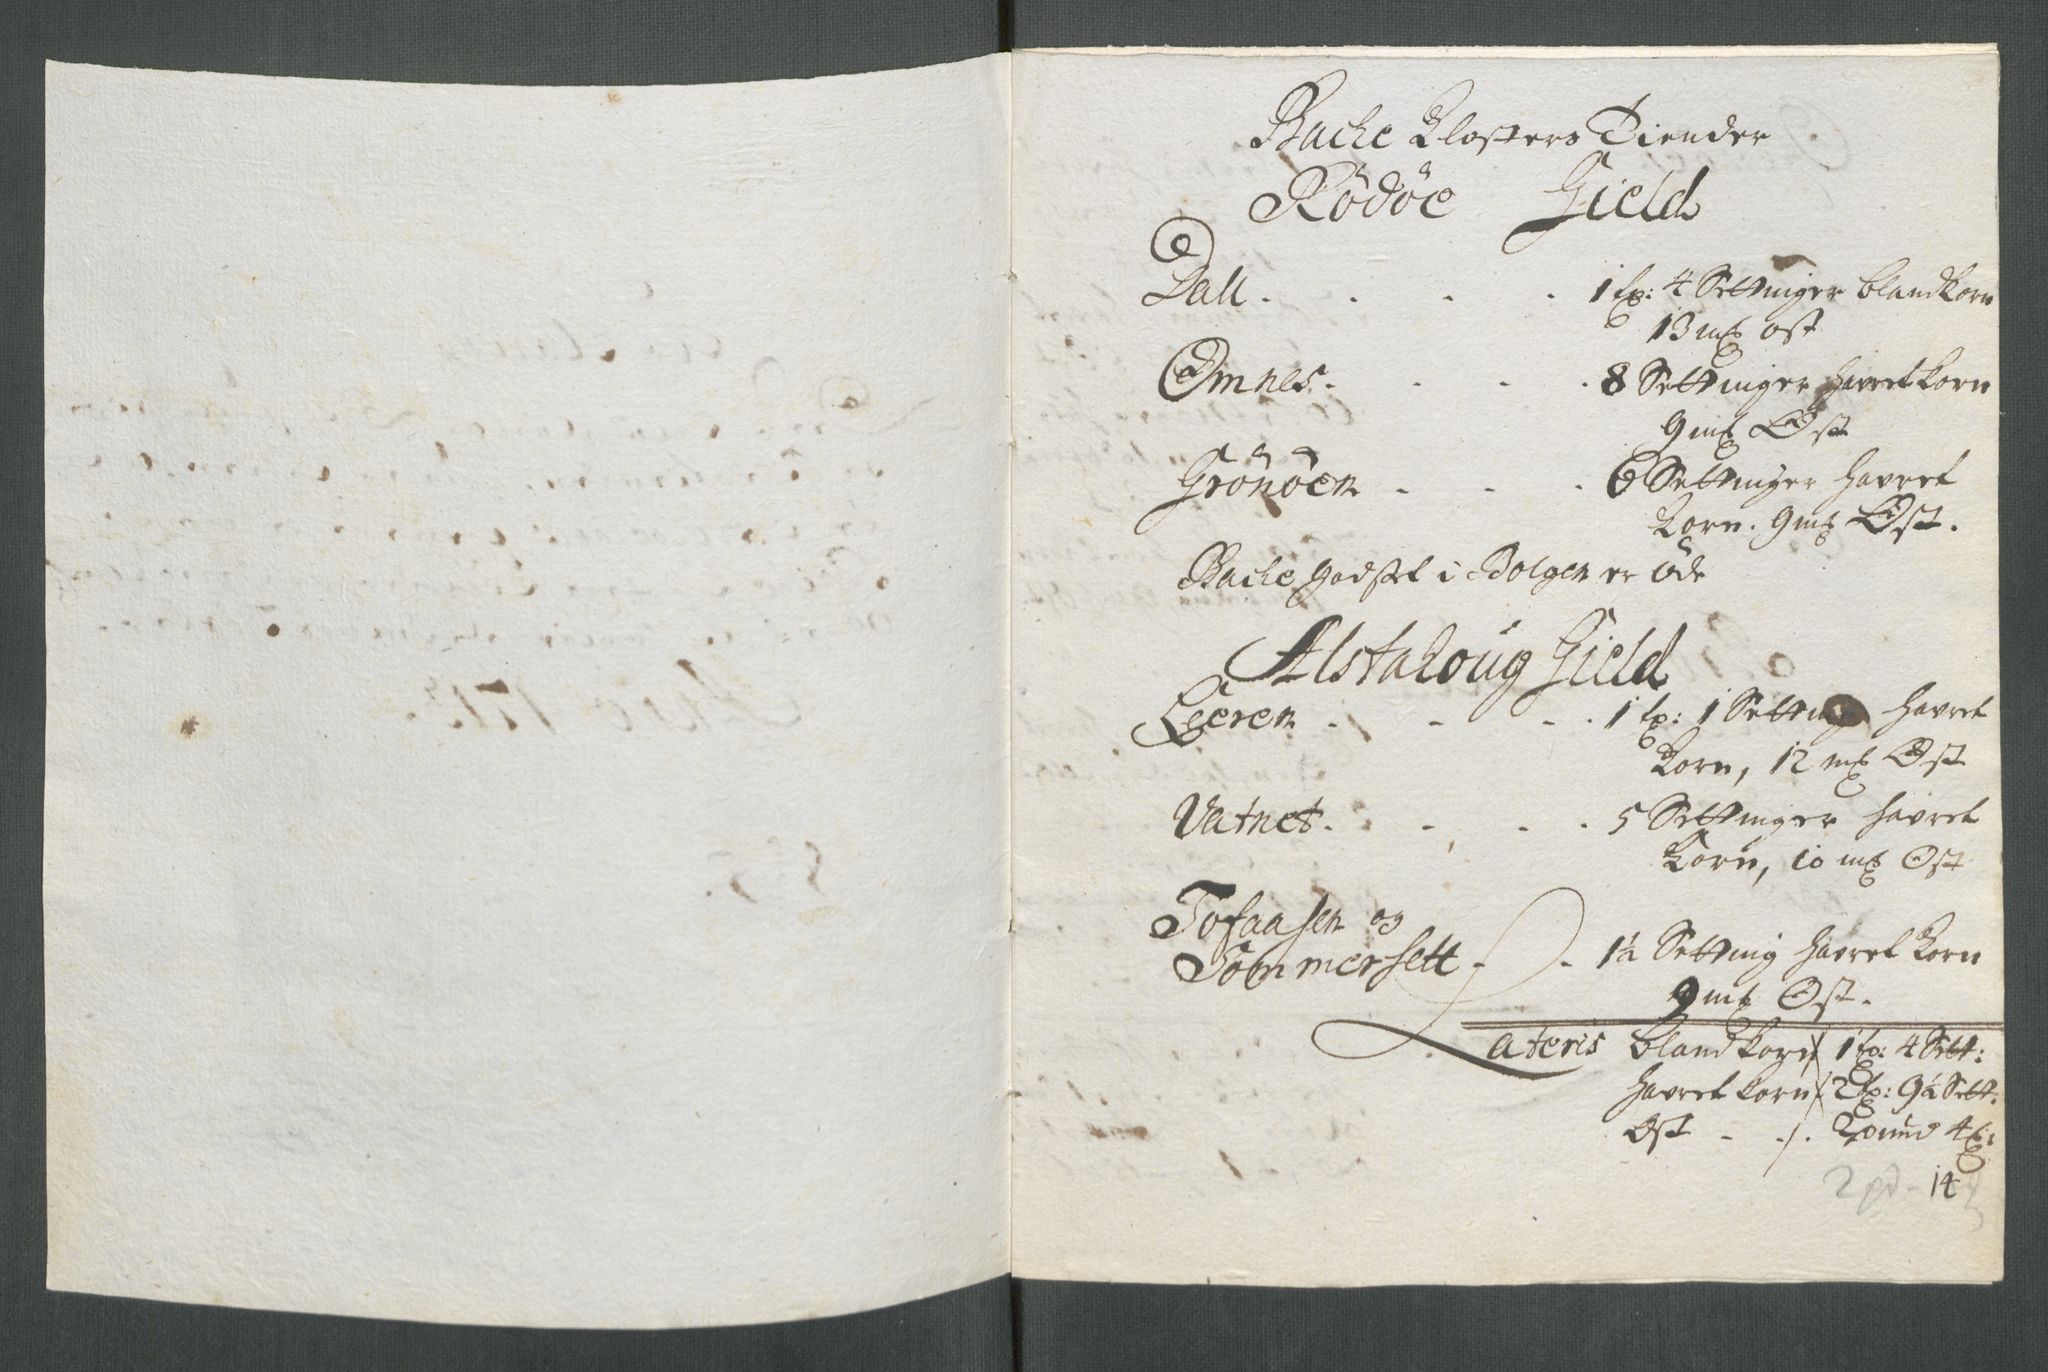 Bache Klosters Tiender
Rödöe Gield
Dall. . . . 1 tø: 4 Settinger blandkorn
13 mk ost
Omnes. . . . 8 Settinger havrekorn
9 mk Ost
Grönöen . . . 6 Settinger havre
Korn. 9 mk Ost.
Bache godset i Bolgen er öde
Alstahoug Gield
Leeren . . . . 1 tø: 1 Setting havre
Korn, 12 mk Ost
Vatnet. . . . 5 Settinger havre
Korn, 10 mk Ost
Tofaasen og
Sommersett - - 1½ Setting havre Korn
9 mk Ost.
Lateris blandkorn 1 tø: 4 Sett:
havrekorn 2 tø: 9½ Sett:
Ost - ./. 2 pund
2 pd - 14